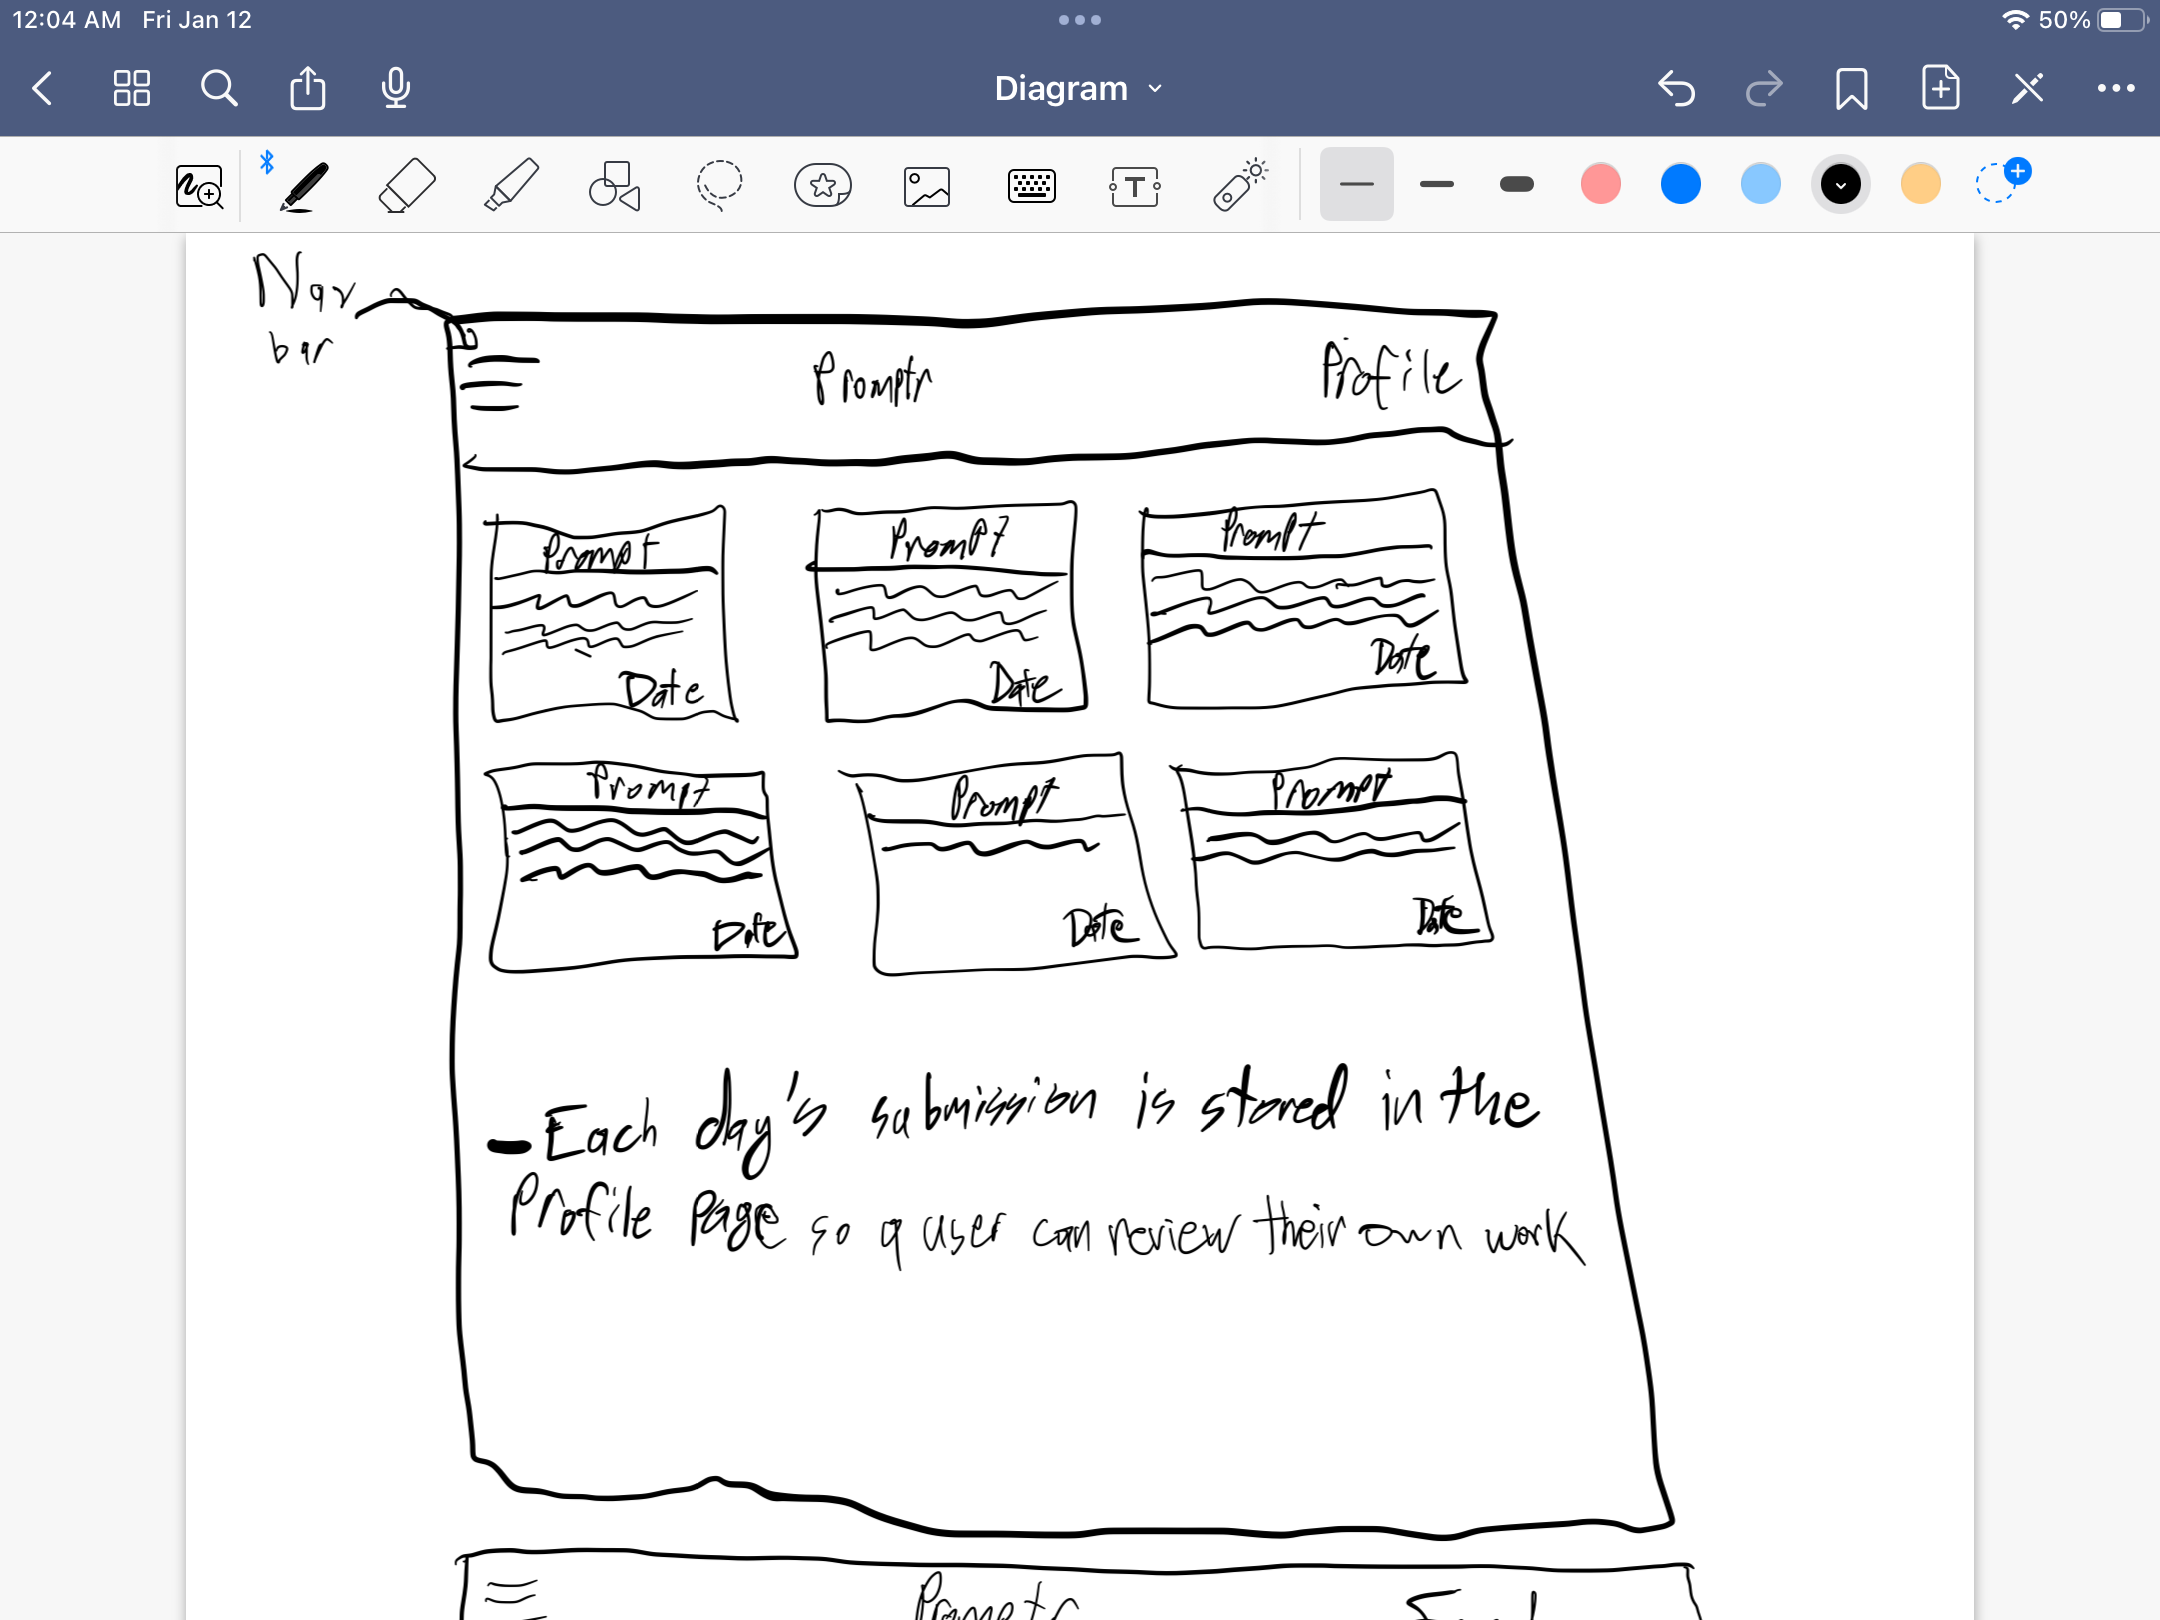 12:04 AM Fri Jan 12
50%
Diagram
T
Nav
bar
Promptr
Profile
Prompt
Prompt
Prompt
Date
Date
Date
Prompt
Prompt
Prompt
Date
Date
Date
- Each day's submission is stored in the
Profile Page so a user can review their own work
Promptr